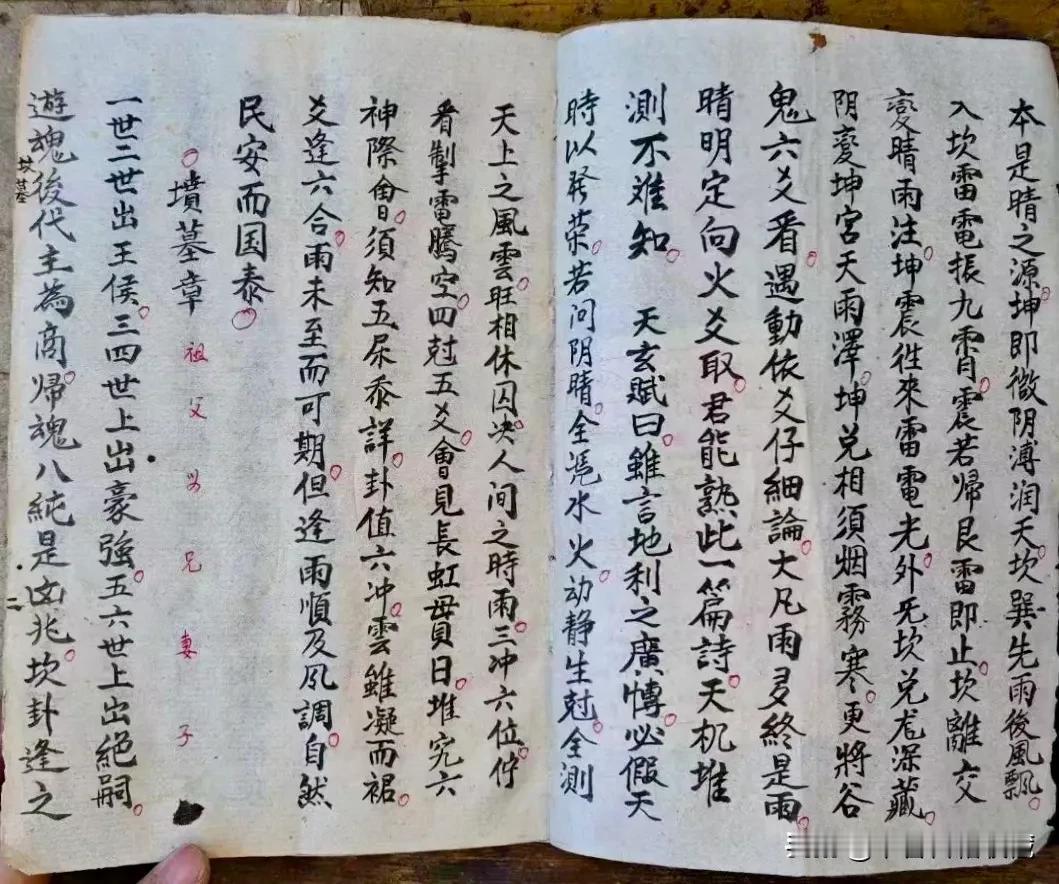 本是晴之源。坤即微阴溥润天。坎巽先雨後風飄。
入坎雷電振九霄。震若帰艮雷即止。坎離交
変晴雨注。坤震徃來雷電光。外旡坎兑尨深藏。
阴変坤宫天雨澤。坤兑相須烟霧寒。更將谷
鬼六爻看。遇動依爻仔細論。大凡雨多終是雨。
晴明定向火爻取。君能熟此一篇詩。天机堆
測不难知。 天玄賦曰。雖言地利之廣愽。必假天
時以發荣。若问阴晴。全凴水火。动静生尅。全测
天上之風雲。旺相休囚。决人间之時雨。三冲六位。佇
看掣電騰空。四尅五爻。會見長虹毋貫日。堆究六
神際會。須知五尿叅詳。卦值六冲。雲雖凝而裾。
爻逢六合。雨未至而可期。但逢雨順及风調。自然
民安而国泰。
墳墓章 祖 父 为 兄 妻 子
一世二世出王侯。三四世上出豪強。五六世上出绝嗣。
遊魂後代主為商。帰魂八純是凶兆。坎卦逢之
坟墓